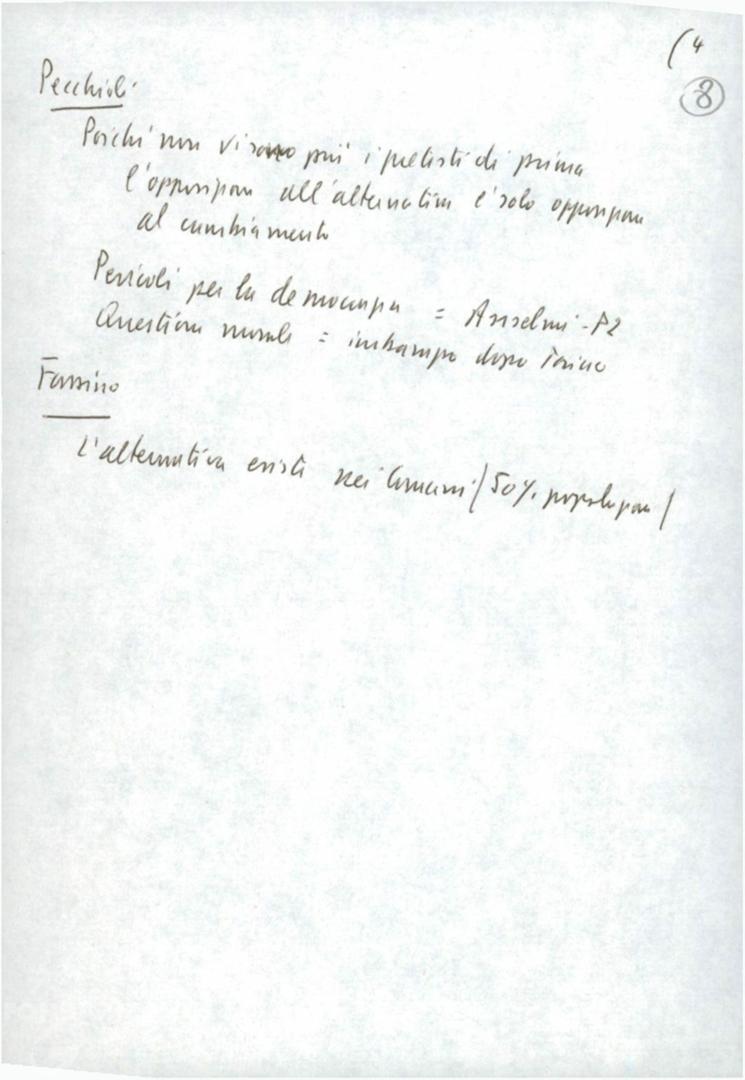 (4
8
Pecchioli
Poiché non vi sono più i pretesti di prima
l'opposizione all'alternativa è solo opposizione
al cambiamento
Pericoli per la democrazia = Anselmi - P2
Questione morale = imbarazzo dopo Torino
Fassino
L'alternativa esiste nei Comuni (50% popolazione)